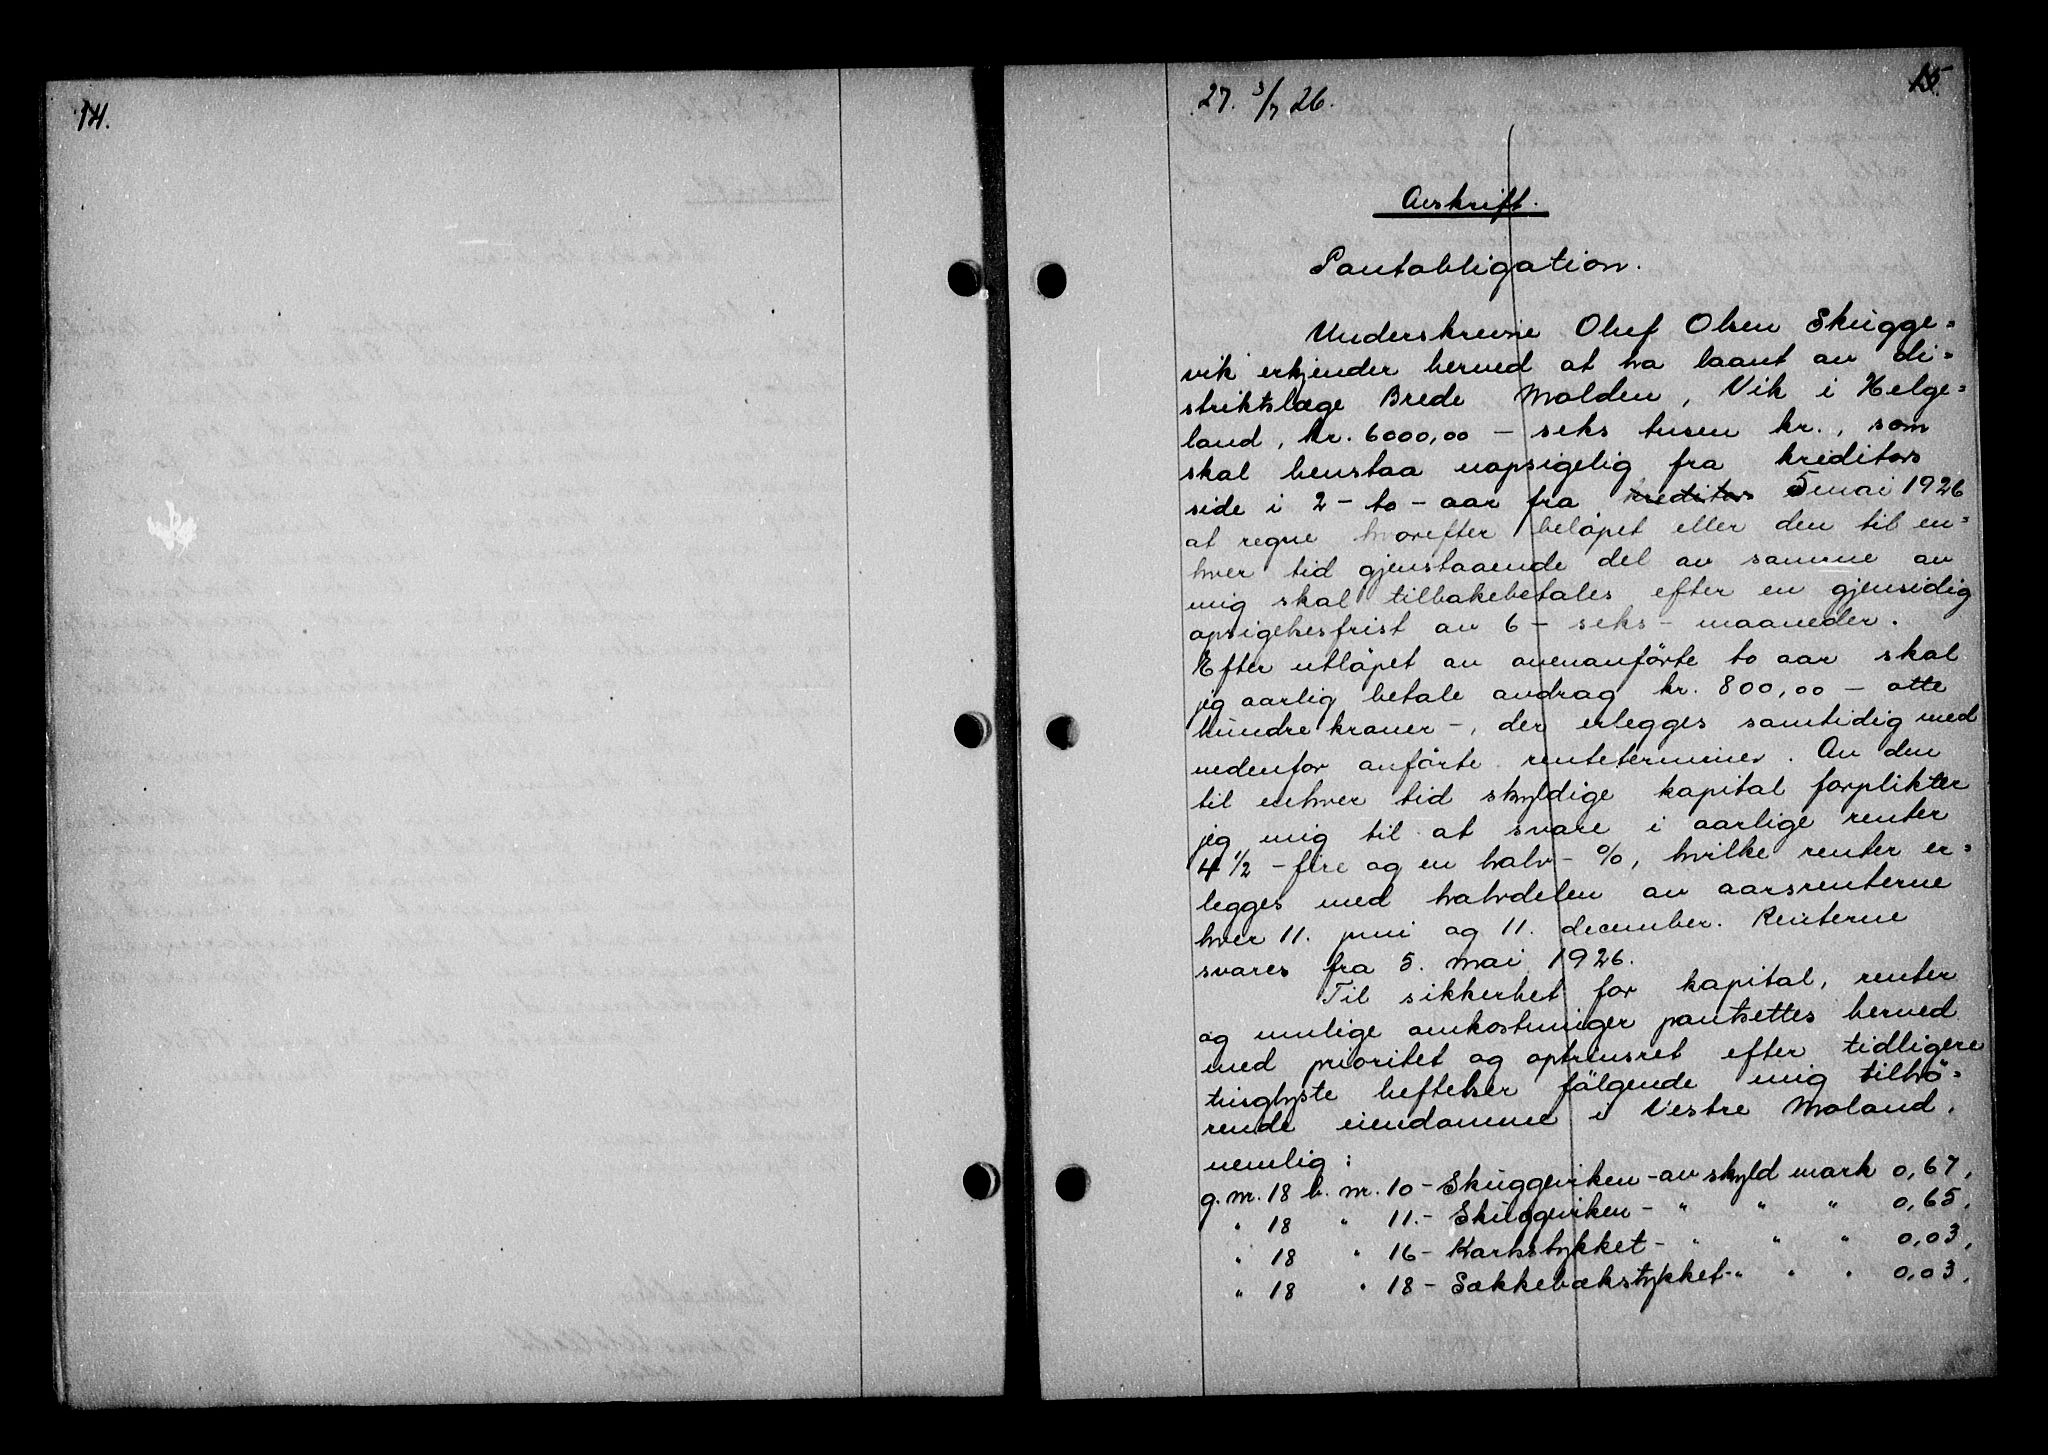 14.
15.
27. 3/7 26.
Avskrift.
Pantobligation.
Underskrevne Oluf Olsen Skugge=
vik erkjender herved at ha laant av di=
striktslæge Brede Molden, Vik i Helge=
land, kr. 6000,00 - seks tusen kr., som
skal henstaa uopsigelig fra kreditors
side i 2 - to - aar fra kreditors 5 mai 1926
at regne hvorefter beløpet eller den til en=
hver tid gjenstaaende del av samme av
mig skal tilbakebetales efter en gjensidig
opsigelsesfrist av 6 - seks - maaneder.
Efter utløpet av ovenanførte to aar skal
jeg aarlig betale avdrag kr. 800,00 - otte
hundre kroner -, der erlegges samtidig med
nedenfor anførte renteterminer. Av den
til enhver tid skyldige kapital forplikter
jeg mig til at svare i aarlige renter
4 1/2 - fire og en halv - %, hvilke renter er=
legges med halvdelen av aarsrenterne
hver 11. juni og 11. december. Renterne
svares fra 5. mai 1926.
Til sikkerhet for kapital, renter
og mulige omkostninger pantsettes herved
med prioritet og optrinsret efter tidligere
tinglyste heftelser følgende mig tilhø=
rende eiendomme i Vestre Moland,
nemlig:
g. nr. 18 b. nr. 10 - Skuggeviken - av skyld mark 0,67,
" 18 " 11. - Skuggeviken - " " " 0,65,
" 18 " 16 - Karlsstykket - " " " 0,03,
" 18 " 18 - Sækkebækstykket - " " " 0,03,